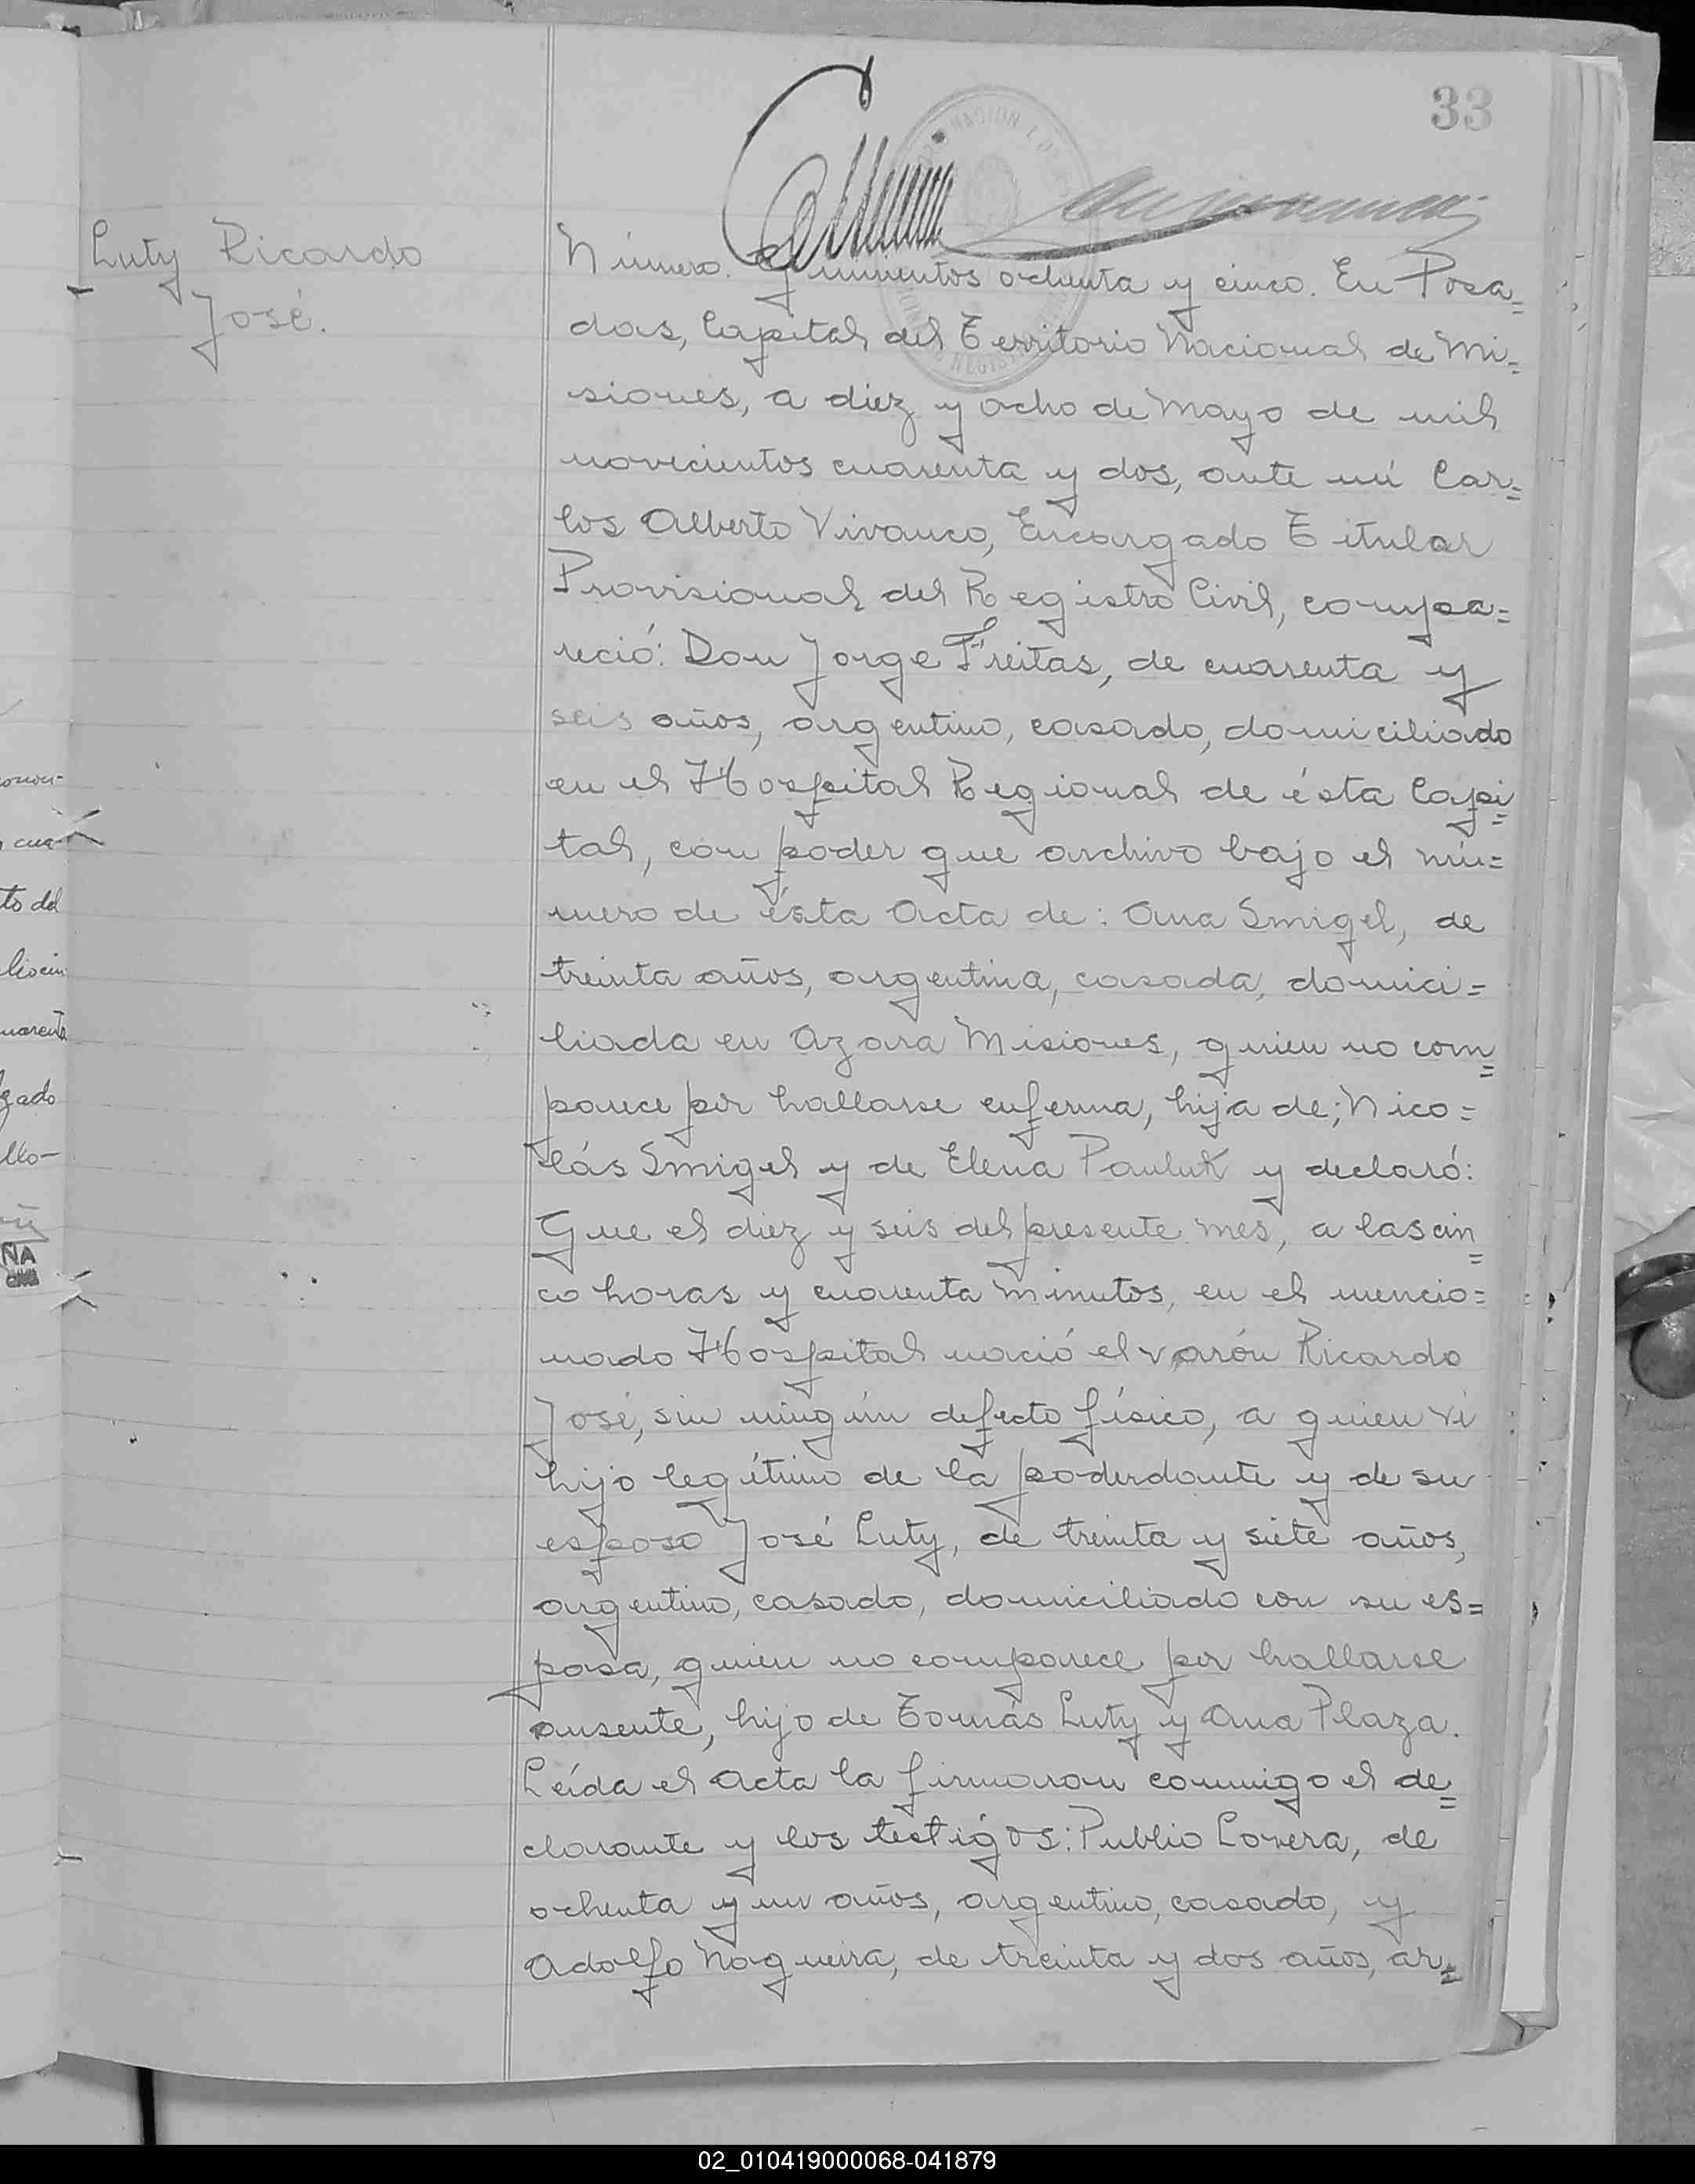 33
Luty Ricardo
José.
Número. Quinientos ochenta y cinco. En Posa=
das, Capital del Territorio Nacional de Mi=
siones, a diez y ocho de Mayo de mil
novecientos cuarenta y dos, ante mí Car=
los Alberto Vivanco, Encargado Titular
Provisional del Registro Civil, compa=
reció: Don Jorge Freitas, de cuarenta y
seis años, argentino, casado, domiciliado
en el Hospital Regional de ésta Capi=
tal, con poder que archivo bajo el nú=
mero de ésta Acta de: Ana Smigel, de
treinta años, argentina, casada, domici=
liada en Azara Misiones, quien no com=
parece por hallarse enferma, hija de; Nico=
lás Smigel y de Elena Pauluk y declaró:
Que el diez y seis del presente mes, a las cin=
co horas y cuarenta minutos, en el mencio=
nado Hospital nació el varón Ricardo
José, sin ningún defecto físico, a quien vi
hijo legítimo de la poderdante y de su
esposo José Luty, de treinta y siete años,
argentino, casado, domiciliado con su es=
posa, quien no comparece por hallarse
ausente, hijo de Tomás Luty y Ana Plaza.
Leída el Acta la firmaron conmigo el de=
clarante y los testigos: Publio Lovera, de
ochenta y un años, argentino, casado, y
Adolfo Nogueira, de treinta y dos años, ar=
to del
gado
ÑA
02_010419000068-041879